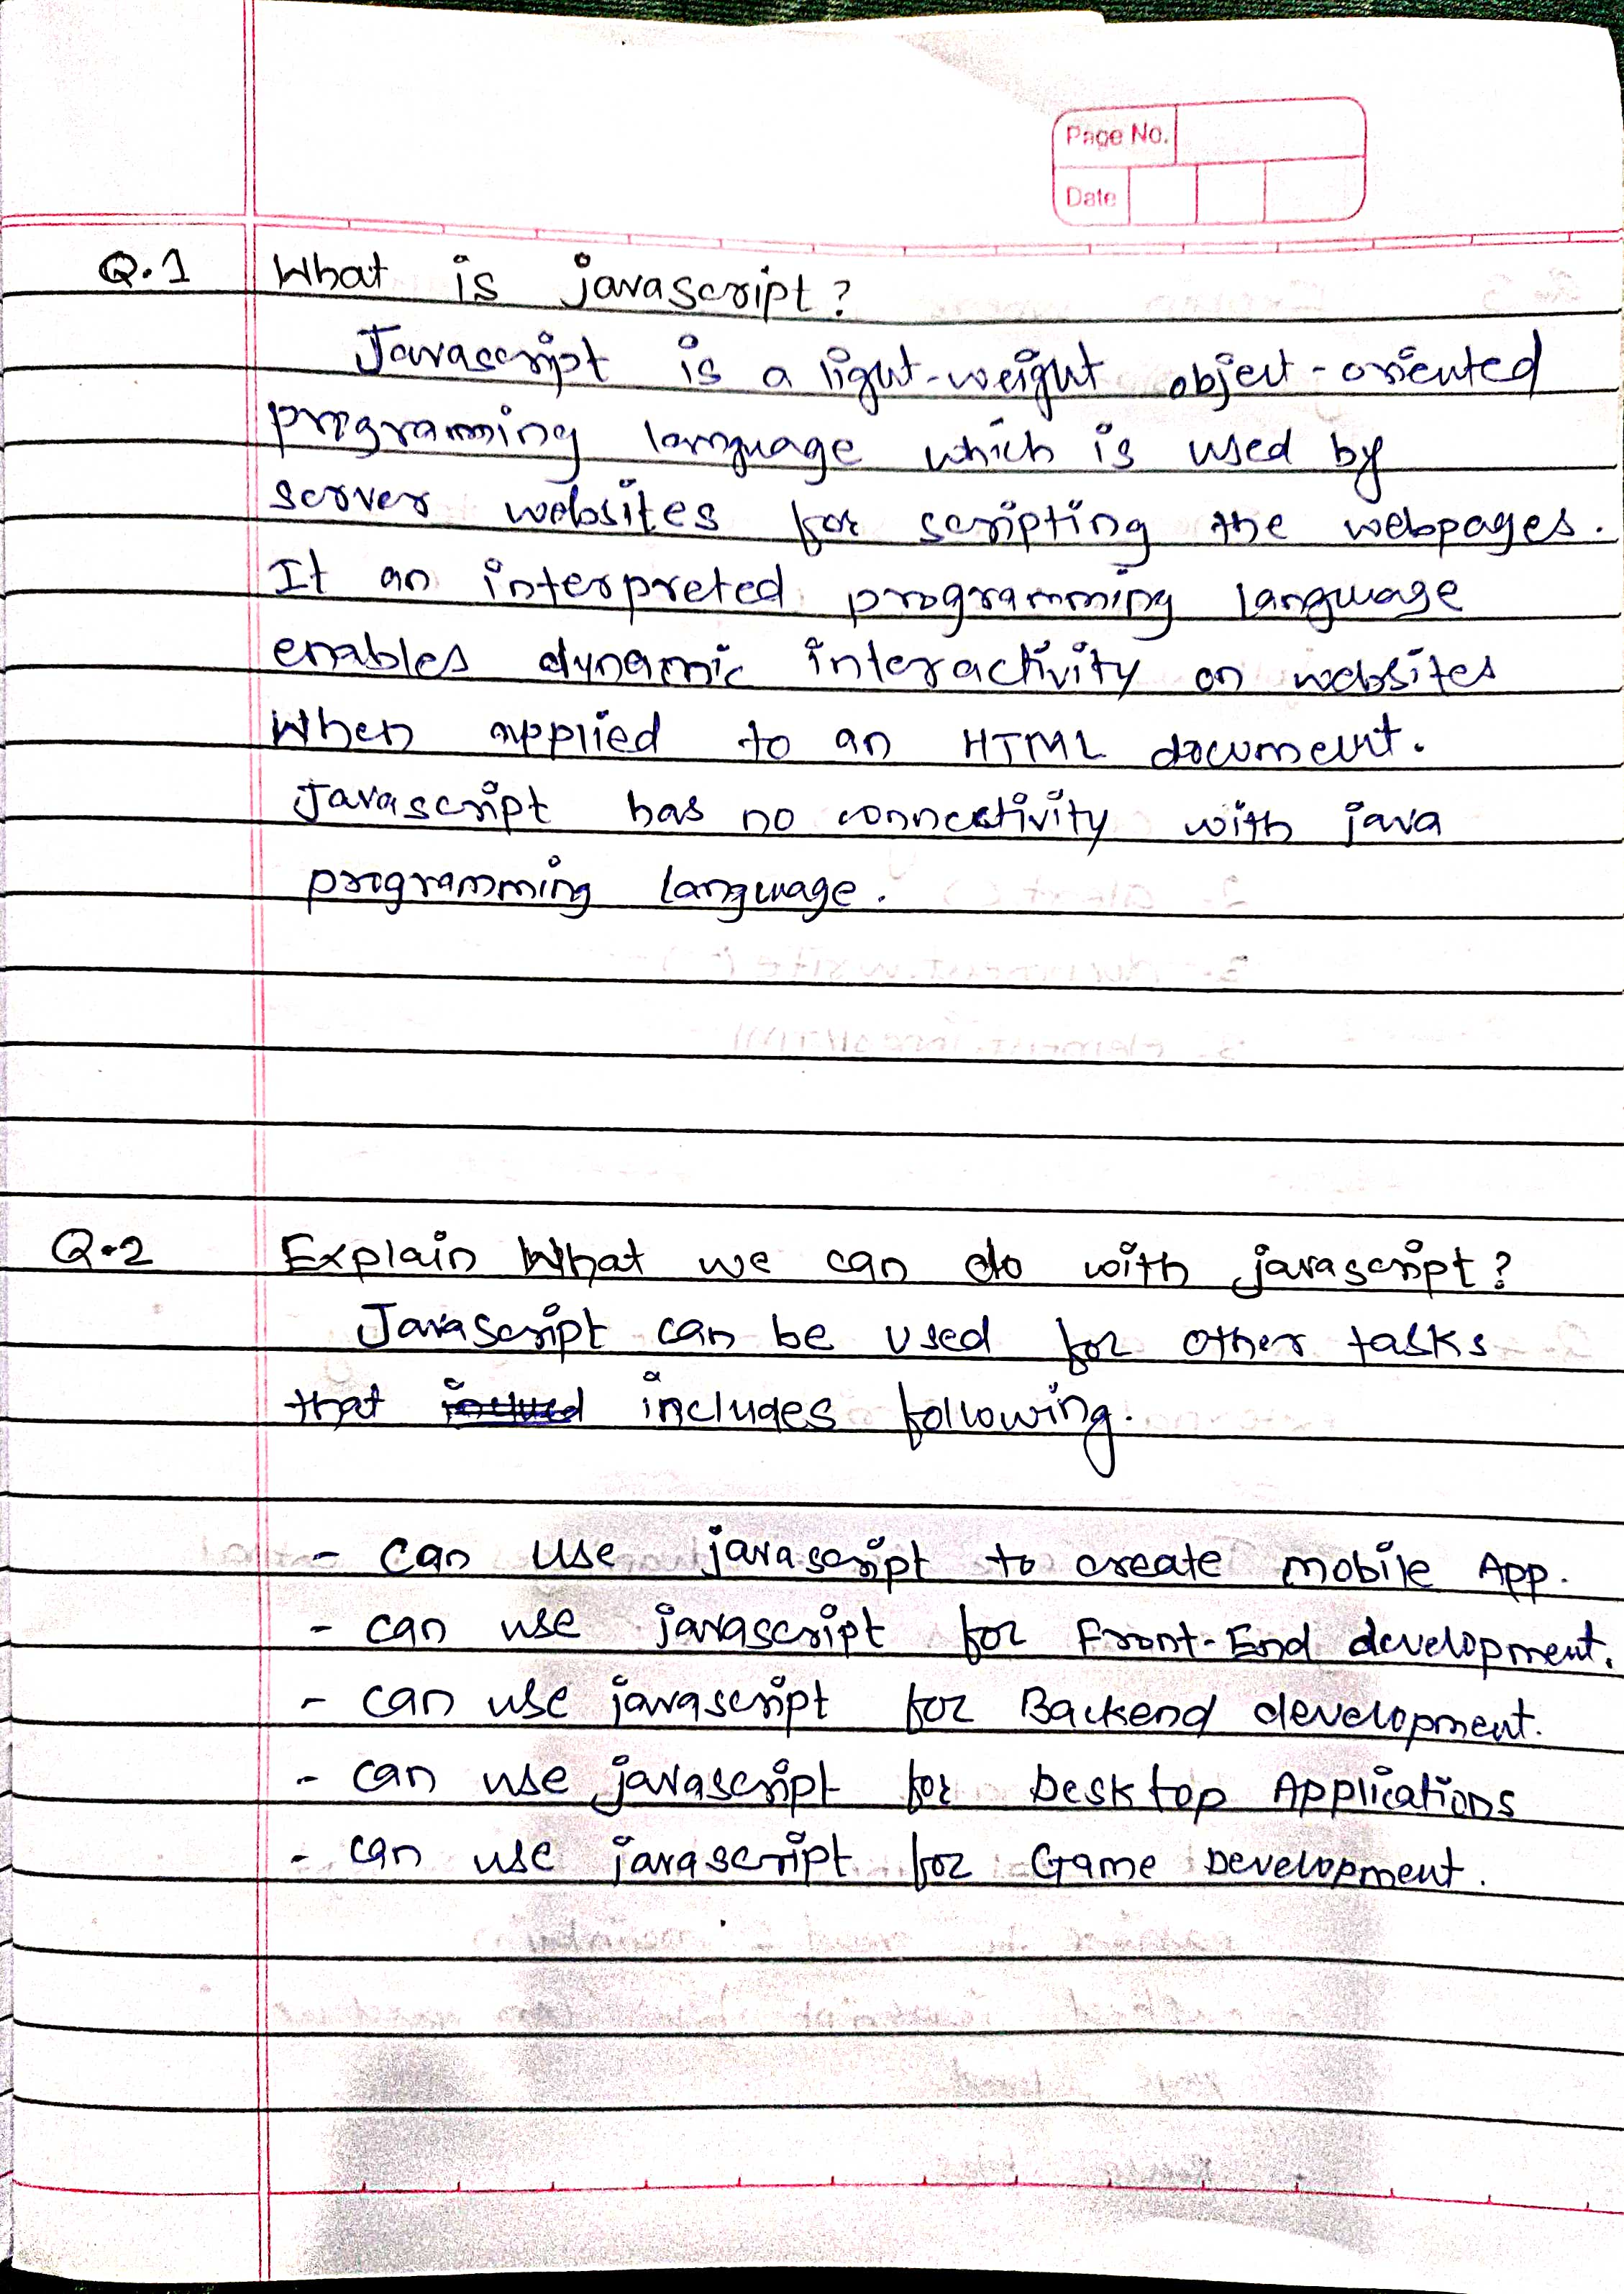 Page No.
Date
Q.1 What is javascript?
Javascript is a light-weight object-oriented
programming language which is used by
server websites for scripting the webpages.
It an interpreted programming language
enables dynamic interactivity on websites
When applied to an HTML document.
Javascript has no connectivity with java
programming language.
Q.2 Explain What we can do with javascript?
Javascript can be used for other tasks
that includes following.
- can use javascript to create mobile App.
- can use javascript for Front-End development.
- can use javascript for Backend development.
- can use javascript for Desktop Applications
- can use javascript for Game Development.